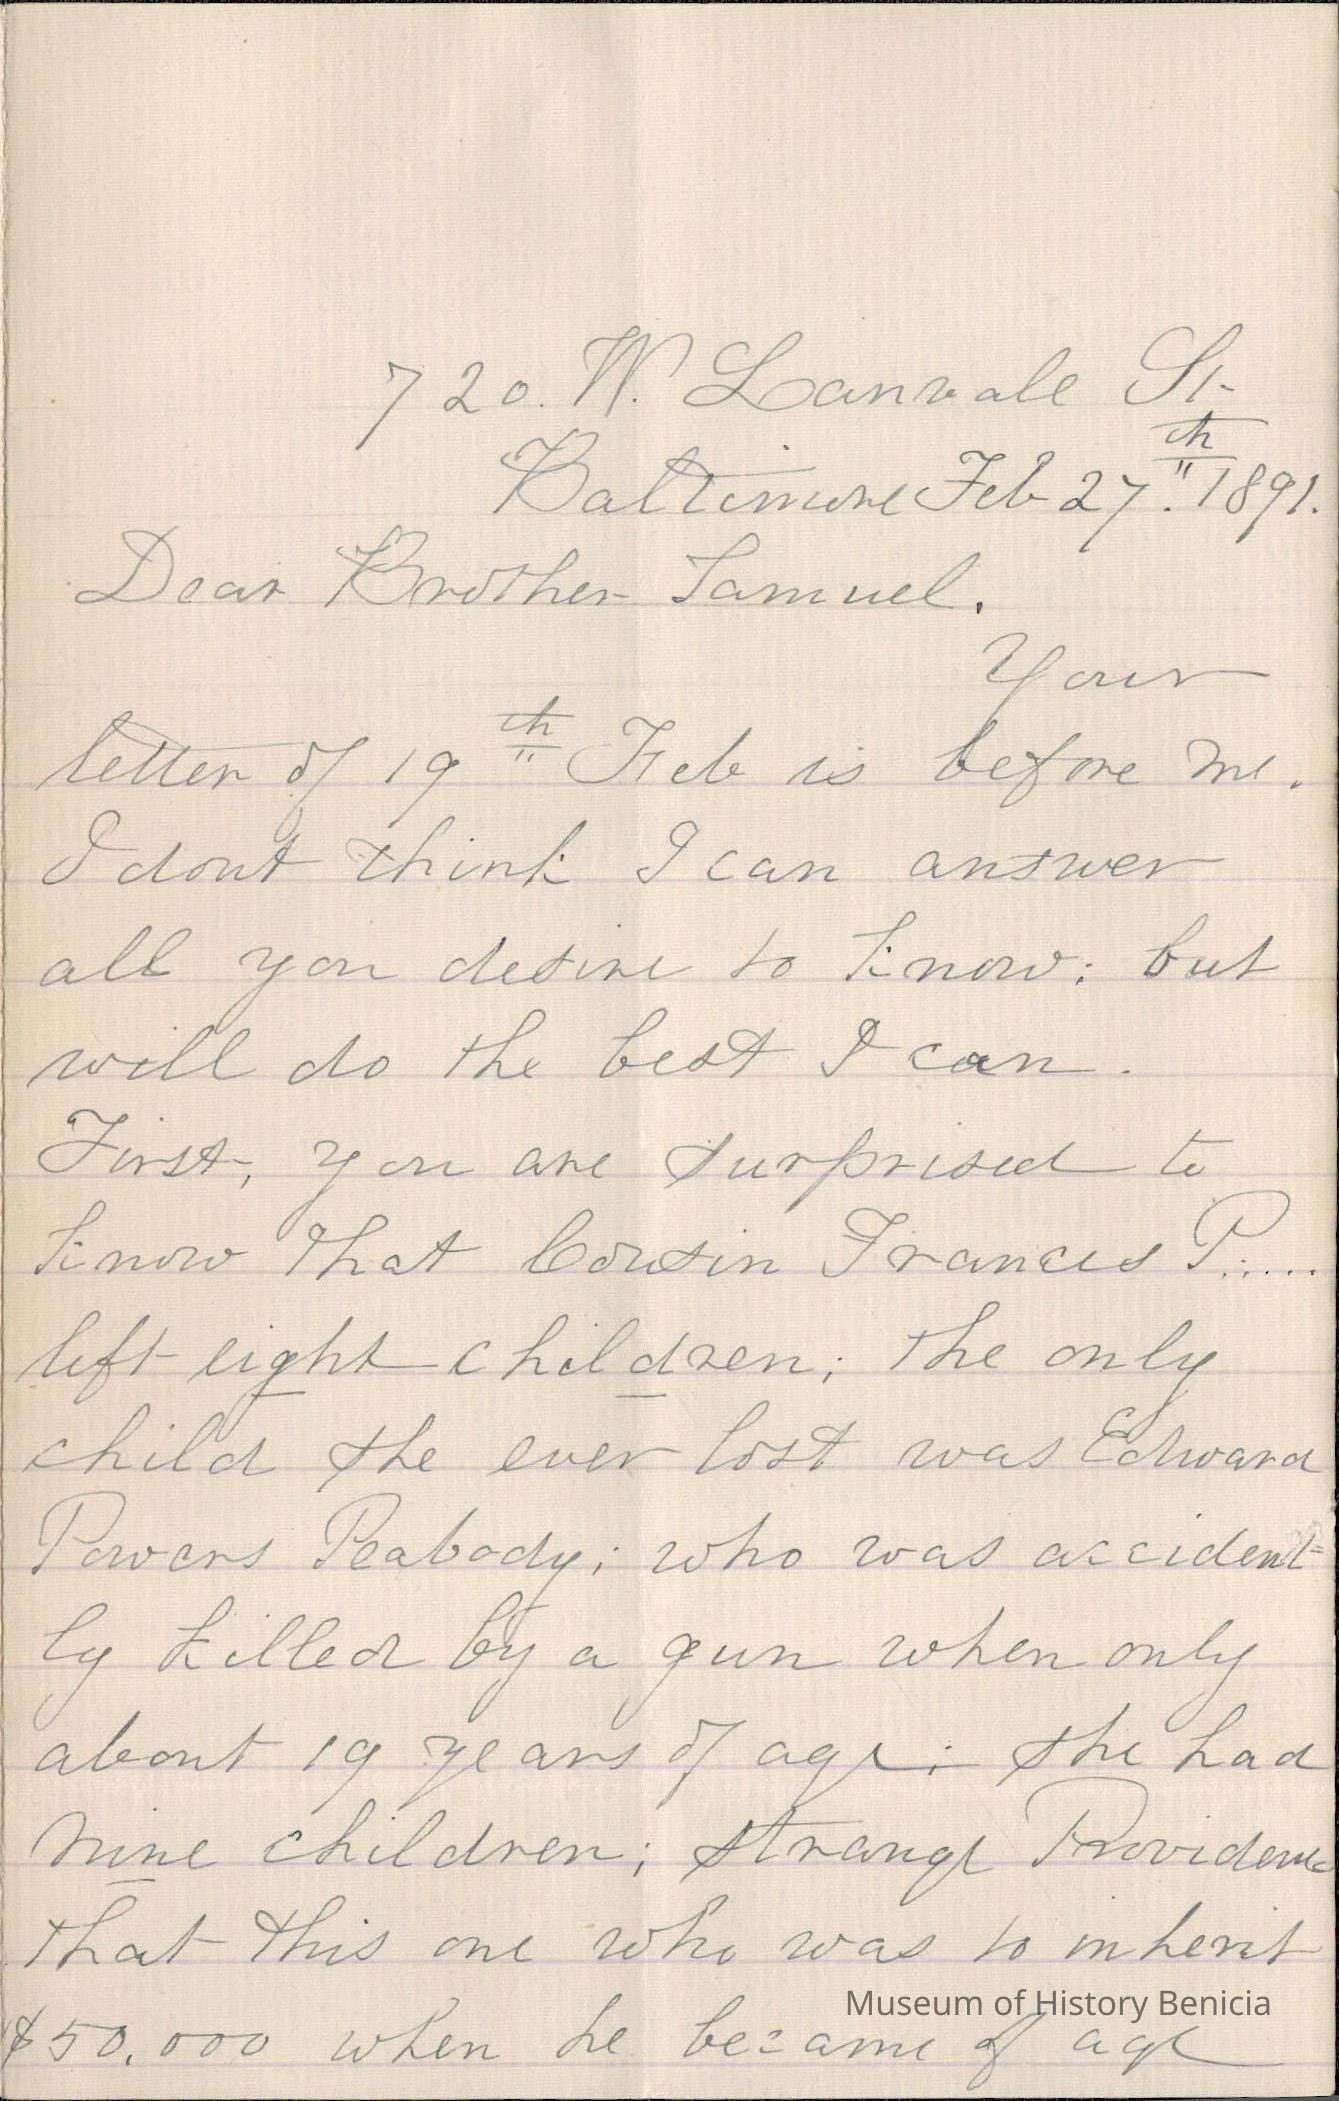 720. W. Lanvale St
Baltimore Feb 27th. 1891.
Dear Brother Samuel.
Your
letter of 19th Feb is before me.
I dont think I can answer
all you desire to know: but
will do the best I can.
First, you are surprised to
know that Cousin Frances P.....
left eight children; the only
child she ever lost was Edward
Powers Peabody; who was accident=
ly killed by a gun when only
about 19 years of age; she had
nine children; strange Providence
that this one who was to inherit
Museum of History Benicia
$50.000 when he became of age